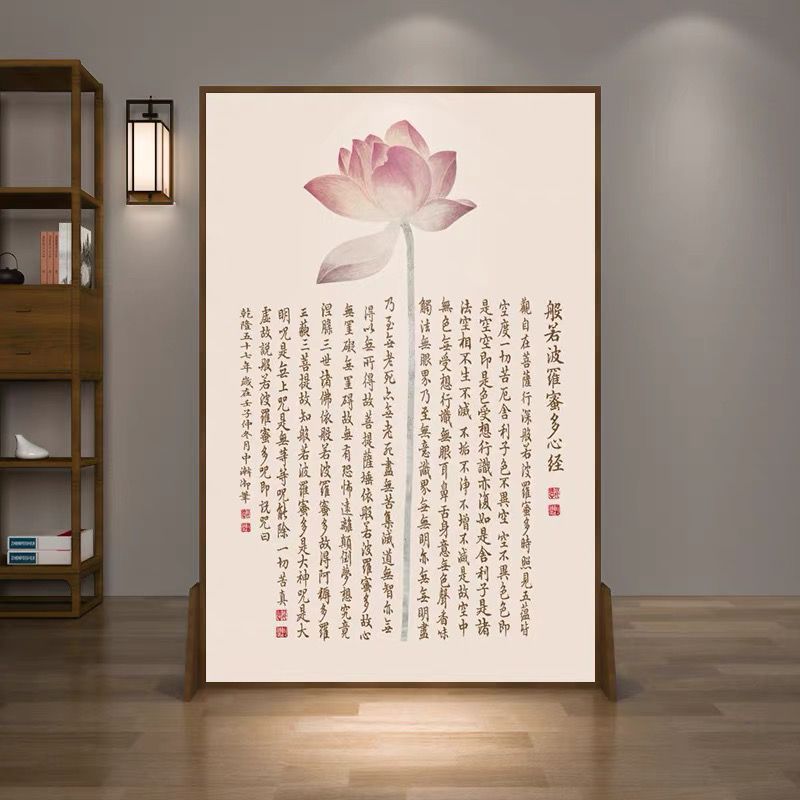 般若波羅蜜多心经
觀自在菩薩行深般若波羅蜜多時照見五蘊皆
空度一切苦厄舍利子色不異空空不異色色即
是空空即是色受想行識亦復如是舍利子是諸
法空相不生不滅不垢不淨不增不減是故空中
無色無受想行識無眼耳鼻舌身意無色聲香味
觸法無眼界乃至無意識界無無明亦無無明盡
乃至無老死亦無老死盡無苦集滅道無智亦無
得以無所得故菩提薩埵依般若波羅蜜多故心
無罣礙無罣礙故無有恐怖遠離顛倒夢想究竟
涅槃三世諸佛依般若波羅蜜多故得阿耨多羅
三藐三菩提故知般若波羅蜜多是大神咒是大
明咒是無上咒是無等等咒能除一切苦真
虛故說般若波羅蜜多咒即說咒曰
乾隆五十七年歲在壬子仲冬月中澣御筆